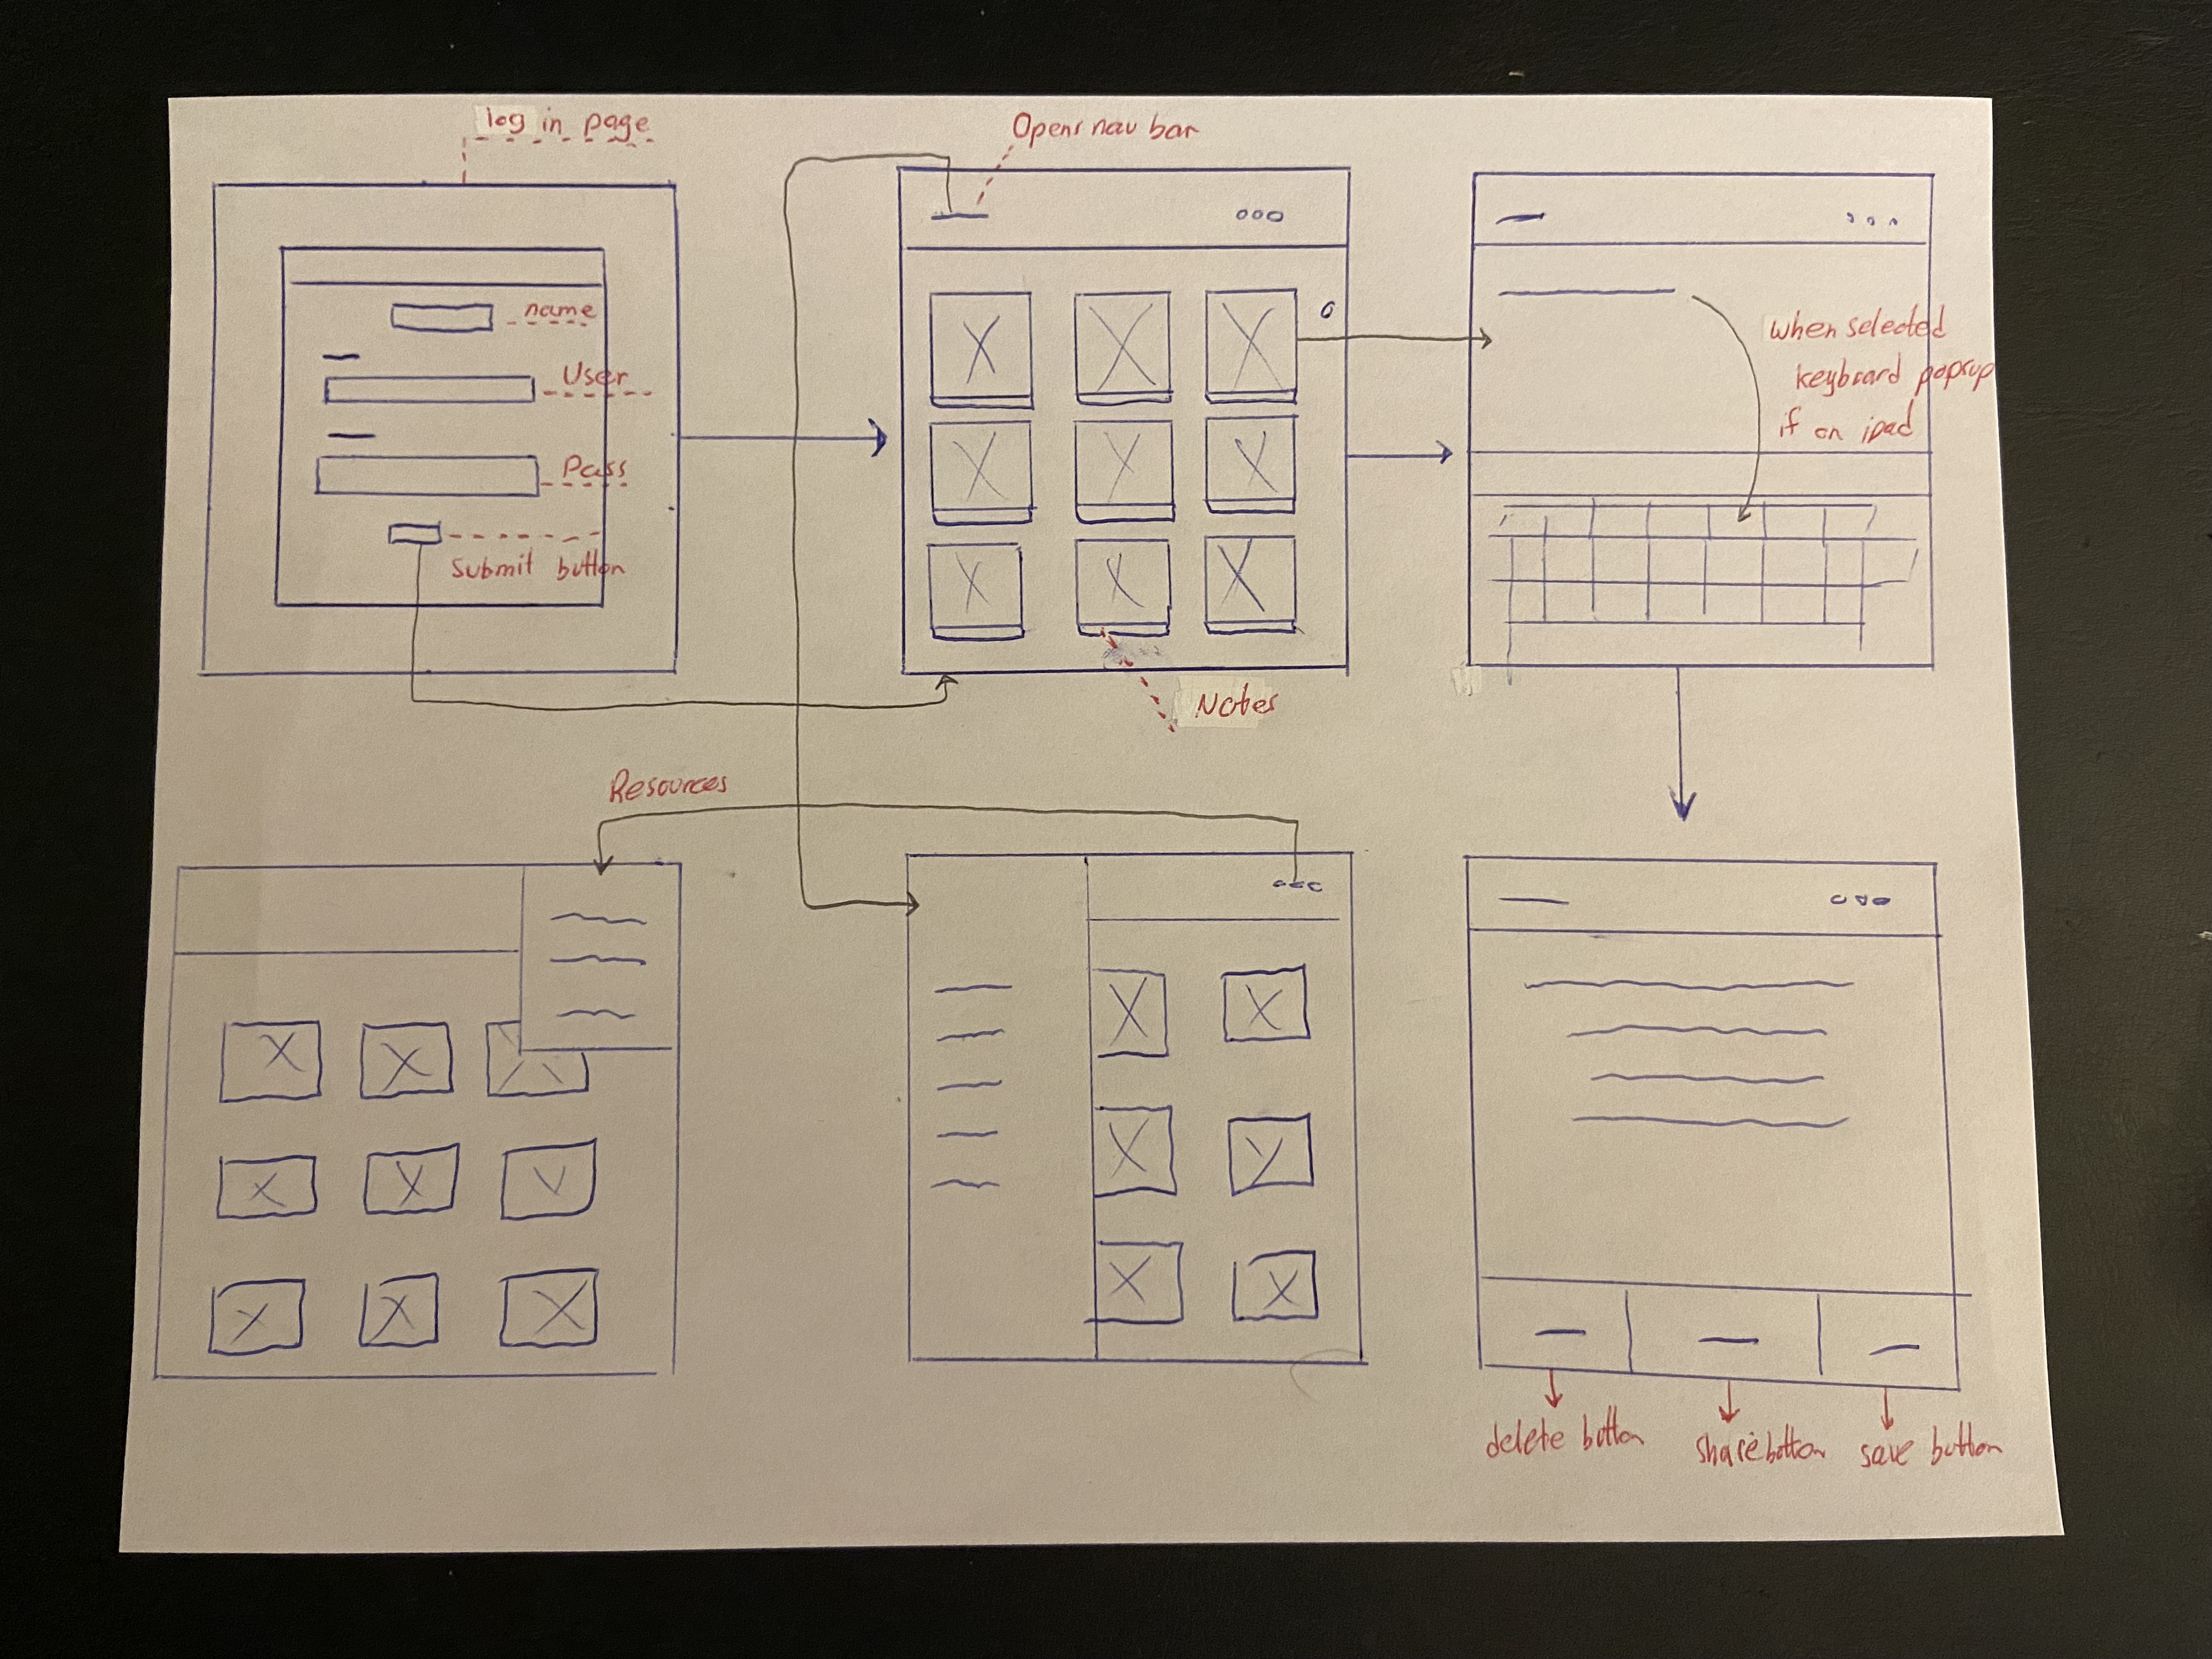 log in page
name
User
Pass
submit button
Opens nav bar
Notes
when selected
keyboard popup
if on ipad
Resources
delete button
share button
save button